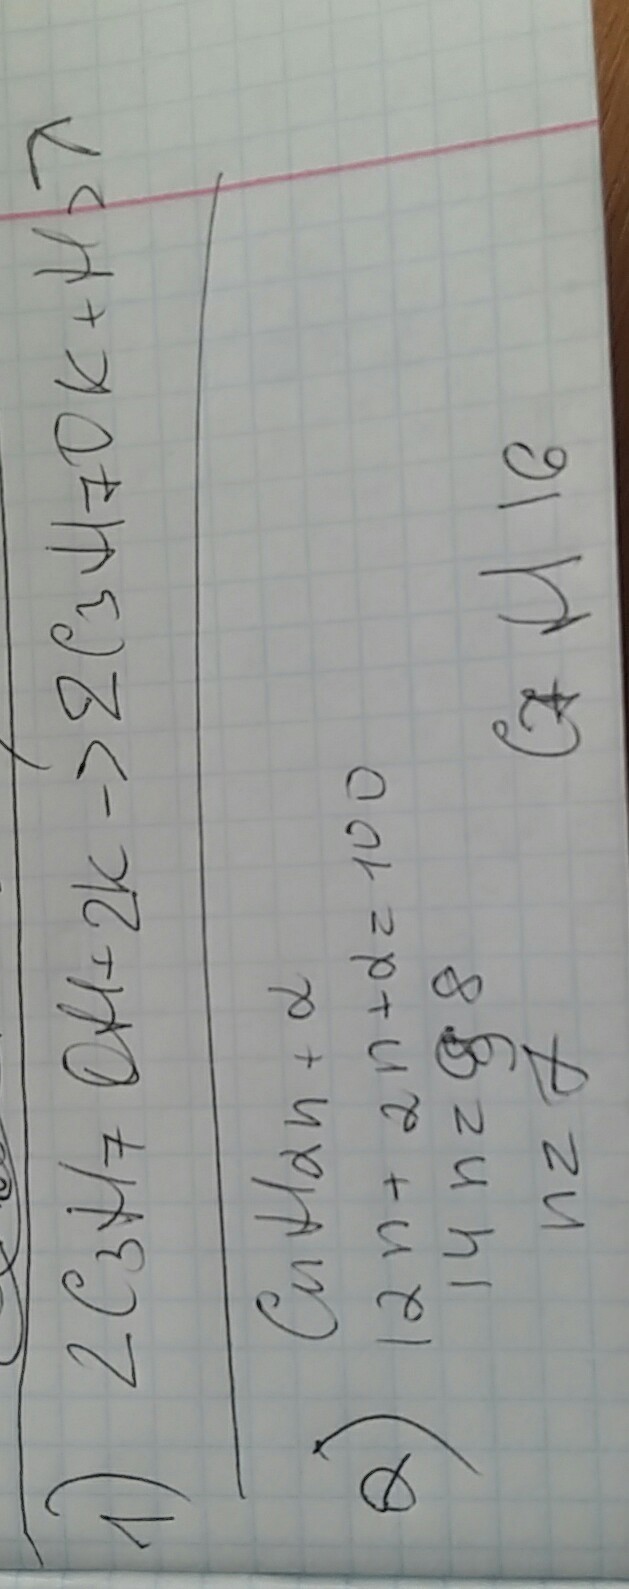 1) 2C3H7OH+2K->2C3H7OK+H2↑
2) CnH2n+2
12n+2n+2=100
14n=98
n=7
C7H16